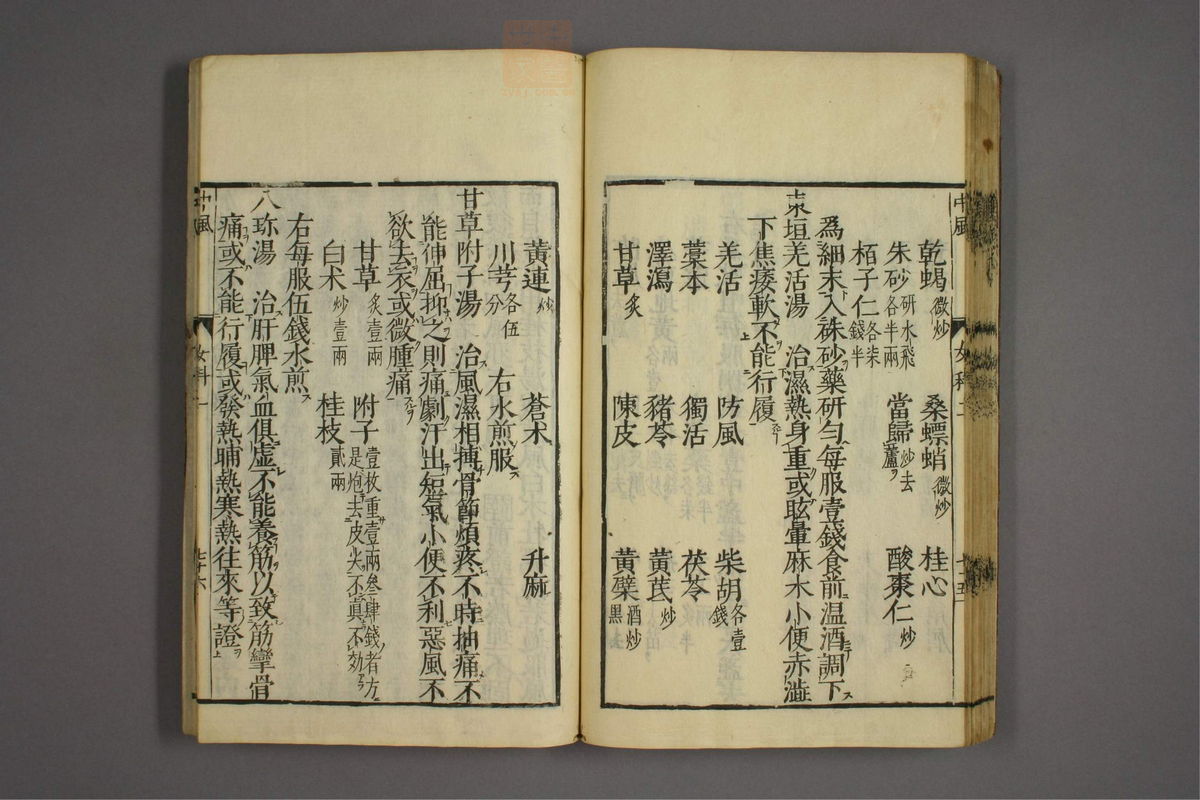 乾蝎微炒 桑螵蛸微炒 桂心
朱砂研水飛各半兩 當歸炒去蘆ヲ 酸棗仁炒
栢子仁各柒錢半
爲細末入硃砂藥研勻每服壹錢食前温酒調下
東垣羌活湯 治濕熱身重或眩暈麻木小便赤澁
下焦痿軟不能行履
羌活 防風 柴胡各壹錢
藁本 獨活 茯苓
澤瀉 豬苓 黃芪炒
甘草炙 陳皮 黃蘗酒炒黑
黃連炒 蒼术 升麻
川芎各伍分 右水煎服
甘草附子湯 治風濕相搏骨節煩疼不時抽痛不
能伸屈抑之則痛劇汗出短氣小便不利惡風不
欲去衣或微腫痛
甘草炙壹兩 附子壹枚重壹兩叁肆錢者方是炮去皮尖不眞不効
白术炒壹兩 桂枝貳兩
右每服伍錢水煎
八珎湯 治肝脾氣血俱虛不能養筋以致筋攣骨
痛或不能行履或發熱晡熱寒熱往來等證
中風 女科一 七十六